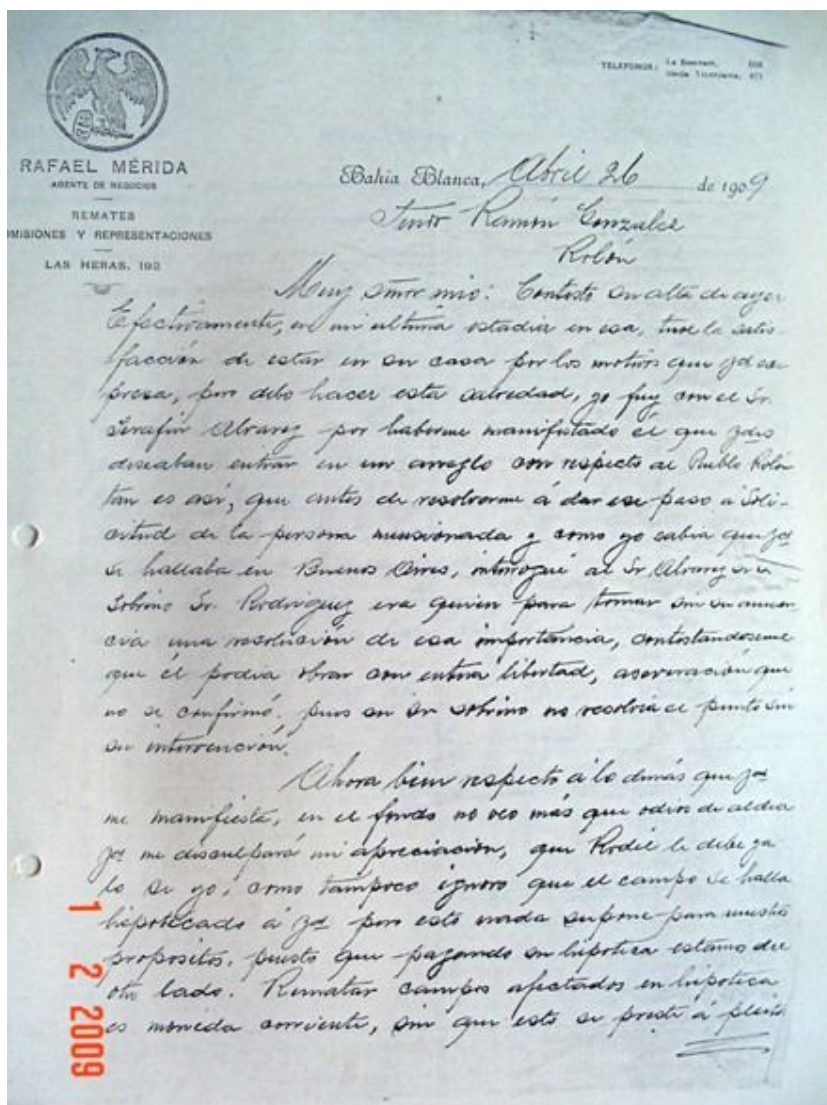 TELEFONOS: La Bonaerense,
Unión Telefónica, 471
RAFAEL MÉRIDA
AGENTE DE NEGOCIOS
REMATES
OMISIONES Y REPRESENTACIONES
LAS HERAS, 192
Bahía Blanca, Abril 26 de 1909
Señor Ramón Gonzalez
Rolón
Muy señor mio: Contesto su atta de ayer
Efectivamente, en mi ultima estadia en esa, tuve la satis-
facción de estar en su casa por los motivos que Vd ex-
presa, pero debo hacer esta salvedad, yo fuy con el Sr.
Serafin Alvarez por haberme manifestado él que Vdes
deseaban entrar en un arreglo con respecto al Pueblo Rolón
tan es así, que antes de resolverme á dar ese paso á soli-
citud de la persona mensionada y como yo sabia que Vd
se hallaba en Buenos Aires, interrogué al Sr Alvarez si el
sobrino Sr. Rodriguez era quien para tomar sin su anuen-
cia una resolución de esa importancia, contestandoseme
que él podia obrar con entera libertad, aseveración que
no se confirmó, pues su Sr sobrino no resolvia el punto sin
su intervención.
Ahora bien respecto á lo demás que Vd
me manifiesta, en el fondo no veo más que odios de aldea
Vd me disculpará mi apreciación, que Rodil le debe ya
lo se yo, como tampoco ignoro que el campo se halla
hipotecado á Vd pero esto nada supone para nuestros
propositos, puesto que pagando su hipoteca estamos del
otro lado. Rematar campos afectados en hipoteca
es moneda corriente, sin que esto se preste á pleito
1 2 2009